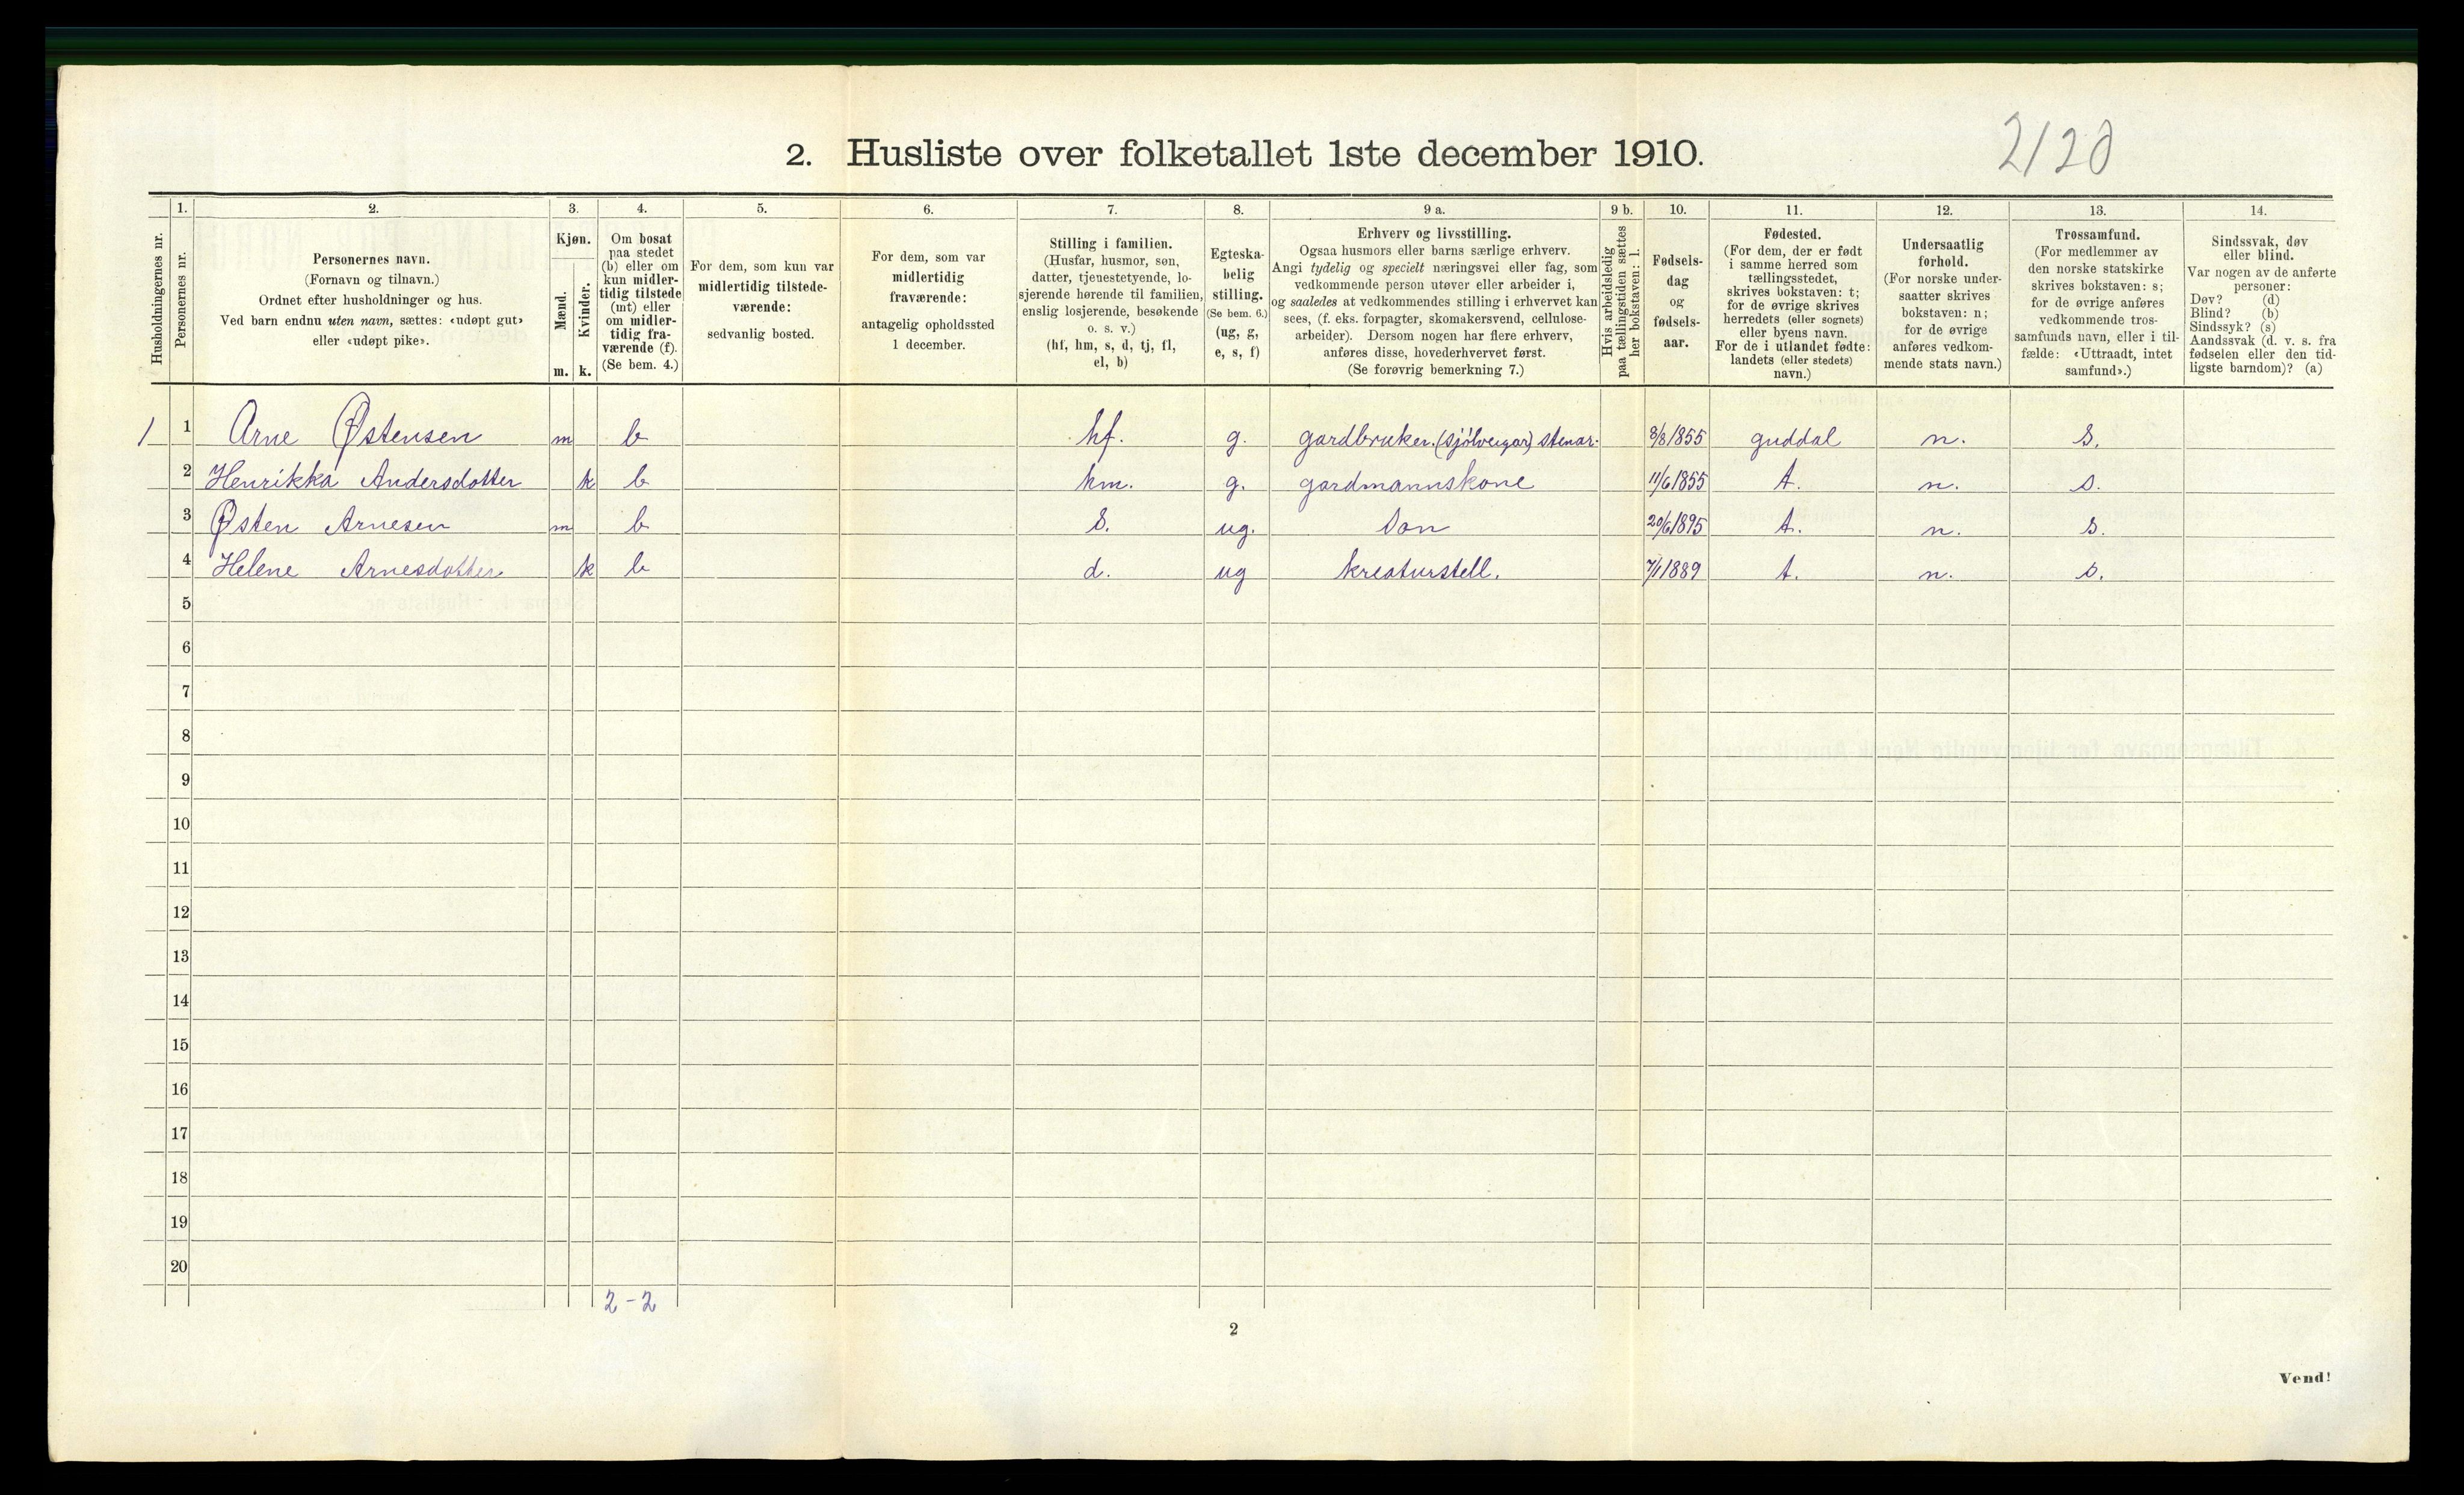 2. Husliste over folketallet 1ste december 1910.
2120
Husholdningernes nr.
1.
Personernes nr.
2.
Personernes navn.
(Fornavn og tilnavn.)
Ordnet efter husholdninger og hus.
Ved barn endnu uten navn, sættes: «udøpt gut»
eller «udøpt pike».
3.
Kjøn.
Mænd.
m.
Kvinder.
k.
4.
Om bosat
paa stedet
(b) eller om
kun midler-
tidig tilstede
(mt) eller
om midler-
tidig fra-
værende (f).
(Se bem. 4.)
5.
For dem, som kun var
midlertidig tilstede-
værende:
sedvanlig bosted.
6.
For dem, som var
midlertidig
fraværende:
antagelig opholdssted
1 december.
7.
Stilling i familien.
(Husfar, husmor, søn,
datter, tjenestetyende, lo-
sjerende hørende til familien,
enslig losjerende, besøkende
o. s. v.)
(hf, hm, s, d, tj, fl,
el, b)
8.
Egteska-
belig
stilling.
(Se bem. 6.)
(ug, g,
e, s, f)
9 a.
Erhverv og livsstilling.
Ogsaa husmors eller barns særlige erhverv.
Angi tydelig og specielt næringsvei eller fag, som
vedkommende person utøver eller arbeider i,
og saaledes at vedkommendes stilling i erhvervet kan
sees, (f. eks. forpagter, skomakersvend, cellulose-
arbeider). Dersom nogen har flere erhverv,
anføres disse, hovederhvervet først.
(Se forøvrig bemerkning 7.)
9 b.
Hvis arbeidsledig
paa tællingstiden sættes
her bokstaven: l.
10.
Fødsels-
dag
og
fødsels-
aar.
11.
Fødested.
(For dem, der er født
i samme herred som
tællingsstedet,
skrives bokstaven: t;
for de øvrige skrives
herredets (eller sognets)
eller byens navn.
For de i utlandet fødte:
landets (eller stedets)
navn.)
12.
Undersaatlig
forhold.
(For norske under-
saatter skrives
bokstaven: n;
for de øvrige
anføres vedkom-
mende stats navn.)
13.
Trossamfund.
(For medlemmer av
den norske statskirke
skrives bokstaven: s;
for de øvrige anføres
vedkommende tros-
samfunds navn, eller i til-
fælde: «Uttraadt, intet
samfund».)
14.
Sindssvak, døv
eller blind.
Var nogen av de anførte
personer:
Døv? (d)
Blind? (b)
Sindssyk? (s)
Aandssvak (d. v. s. fra
fødselen eller den tid-
ligste barndom)? (a)
1 1 Arne Østensen m b hf. g. gardbruker. (sjølveigar) stenar. 8/8 1855 guddal n. s.
2 Henrikka Andersdotter k b hm. g. gardmannskone 11/6 1855 t. n. s.
3 Østen Arnesen m b s. ug. Son 20/6 1895 t. n. s.
4 Helene Arnesdotter k b d. ug kreaturstell. 7/1 1889 t. n. s.
5
6
7
8
9
10
11
12
13
14
15
16
17
18
19
20
2-2
2
Vend!